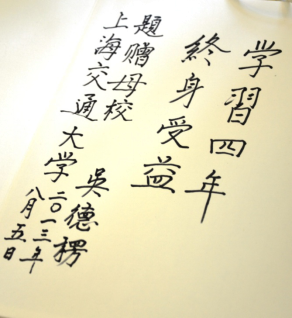 学習四年
終身受益
題贈母校
上海交通大学
吳德楞
二〇一三年
八月五日